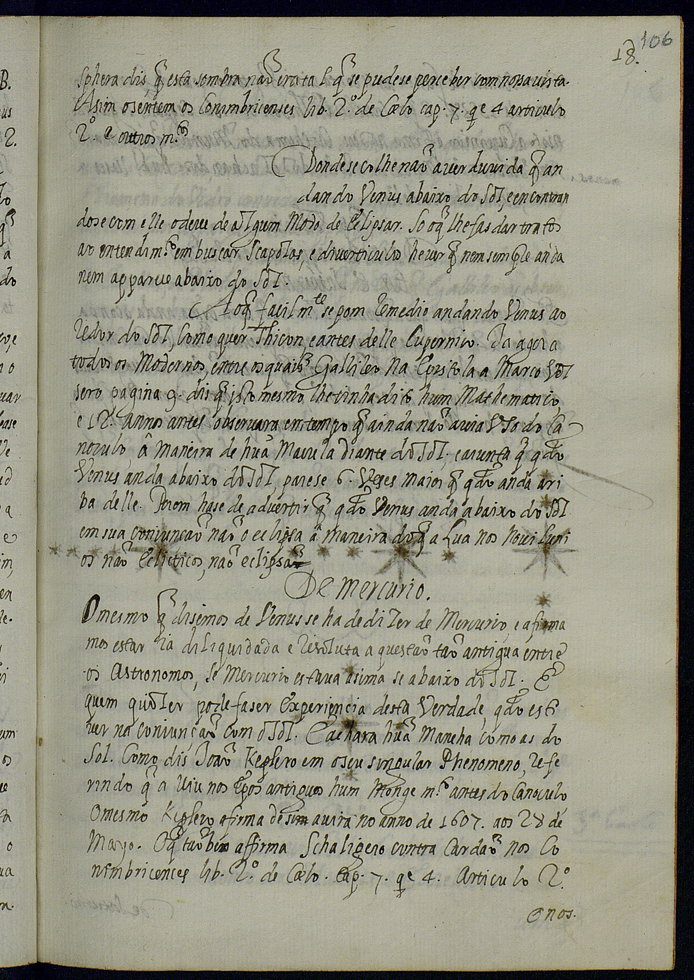 18. 106
sphera dis, q̃ esta sombra naõ era tal q̃ se pudese perceber com nossa vista.
Assim o sentem os Conimbricenses lib. 2.º de Cælo cap. 7. qe 4 articulo
2.º e outros m.tos
Donde se colhe naõ aver duvida q̃ an
dando Venus abaixo do Sol, e encontran
dose com elle o deve de algum Modo de Eclipsar. So o q̃ lhe fas dar tratos
ao entendim.to em buscar Scapolas, e diverticulo he ver q̃ nem sempre anda
nem apparece abaixo do Sol.
Ao q̃ facilm.te se poem Remedio andando Venus ao
Redor do Sol, Como quer Thicon, e antes delle Cupernico. Da agora
todos os Modernos, entre os quais Gallileo Na Epistola a Marco Vel
sero pagina 9. dis q̃ isto mesmo lhe tinha dito hum Mathematico,
e 12. Annos antes observara em tempo q̃ ainda naõ avia Vso do Ca
noculo â Maneira de huã Macula diante do Sol, q̃ qdo
Venus anda abaixo do Sol parese 6. Veses maior q̃ qdo anda ari
ba delle. Porem hase de advertir q̃ qdo Venus anda abaixo do Sol
em sua conjunçaõ naõ o eclipsa â maneira do q̃ a Lua nos Novi Luni
os naõ Eclipticos, naõ eclipsa
De Mercurio.
O mesmo q̃ disemos de Venus se ha de dizer de Mercurio e afirma
mos estar ia diliquidada e resoluta a questaõ taõ antigua entre
os Astronomos, se Mercurio estava asima se abaixo do Sol. E
quem quiser pode faser Experiencia desta Verdade, qdo esti
ver na conjunçaõ com o Sol. E achara huã Mancha como as do
Sol. Como dis Joaõ Keplero em o seu singular Phenomeno, Refe
rindo q̃ a Viu nos tẽpos antiguos hum Monge m.to antes do Canoculo
O mesmo Keplero afirma de si a vira no anno de 1607. aos 28 de
Mayo. O q̃ tambem affirma Schaligero contra Cardaõ nos Co
nimbricenses lib. 2.º de Cælo. Cap. 7. qe 4. Articulo 2.º
E nos.